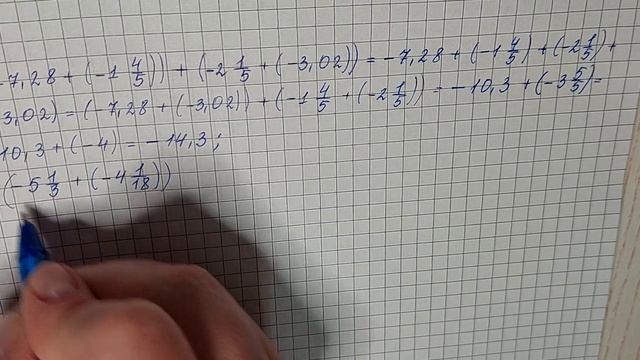 7,28 + (-1 4/5)) + (-2 1/5 + (-3,02)) = -7,28 + (-1 4/5) + (-2 1/5) +
3,02) = (-7,28 + (-3,02)) + (-1 4/5 + (-2 1/5)) = -10,3 + (-3 5/5) =
10,3 + (-4) = -14,3;
(-5 1/3 + (-4 1/18))